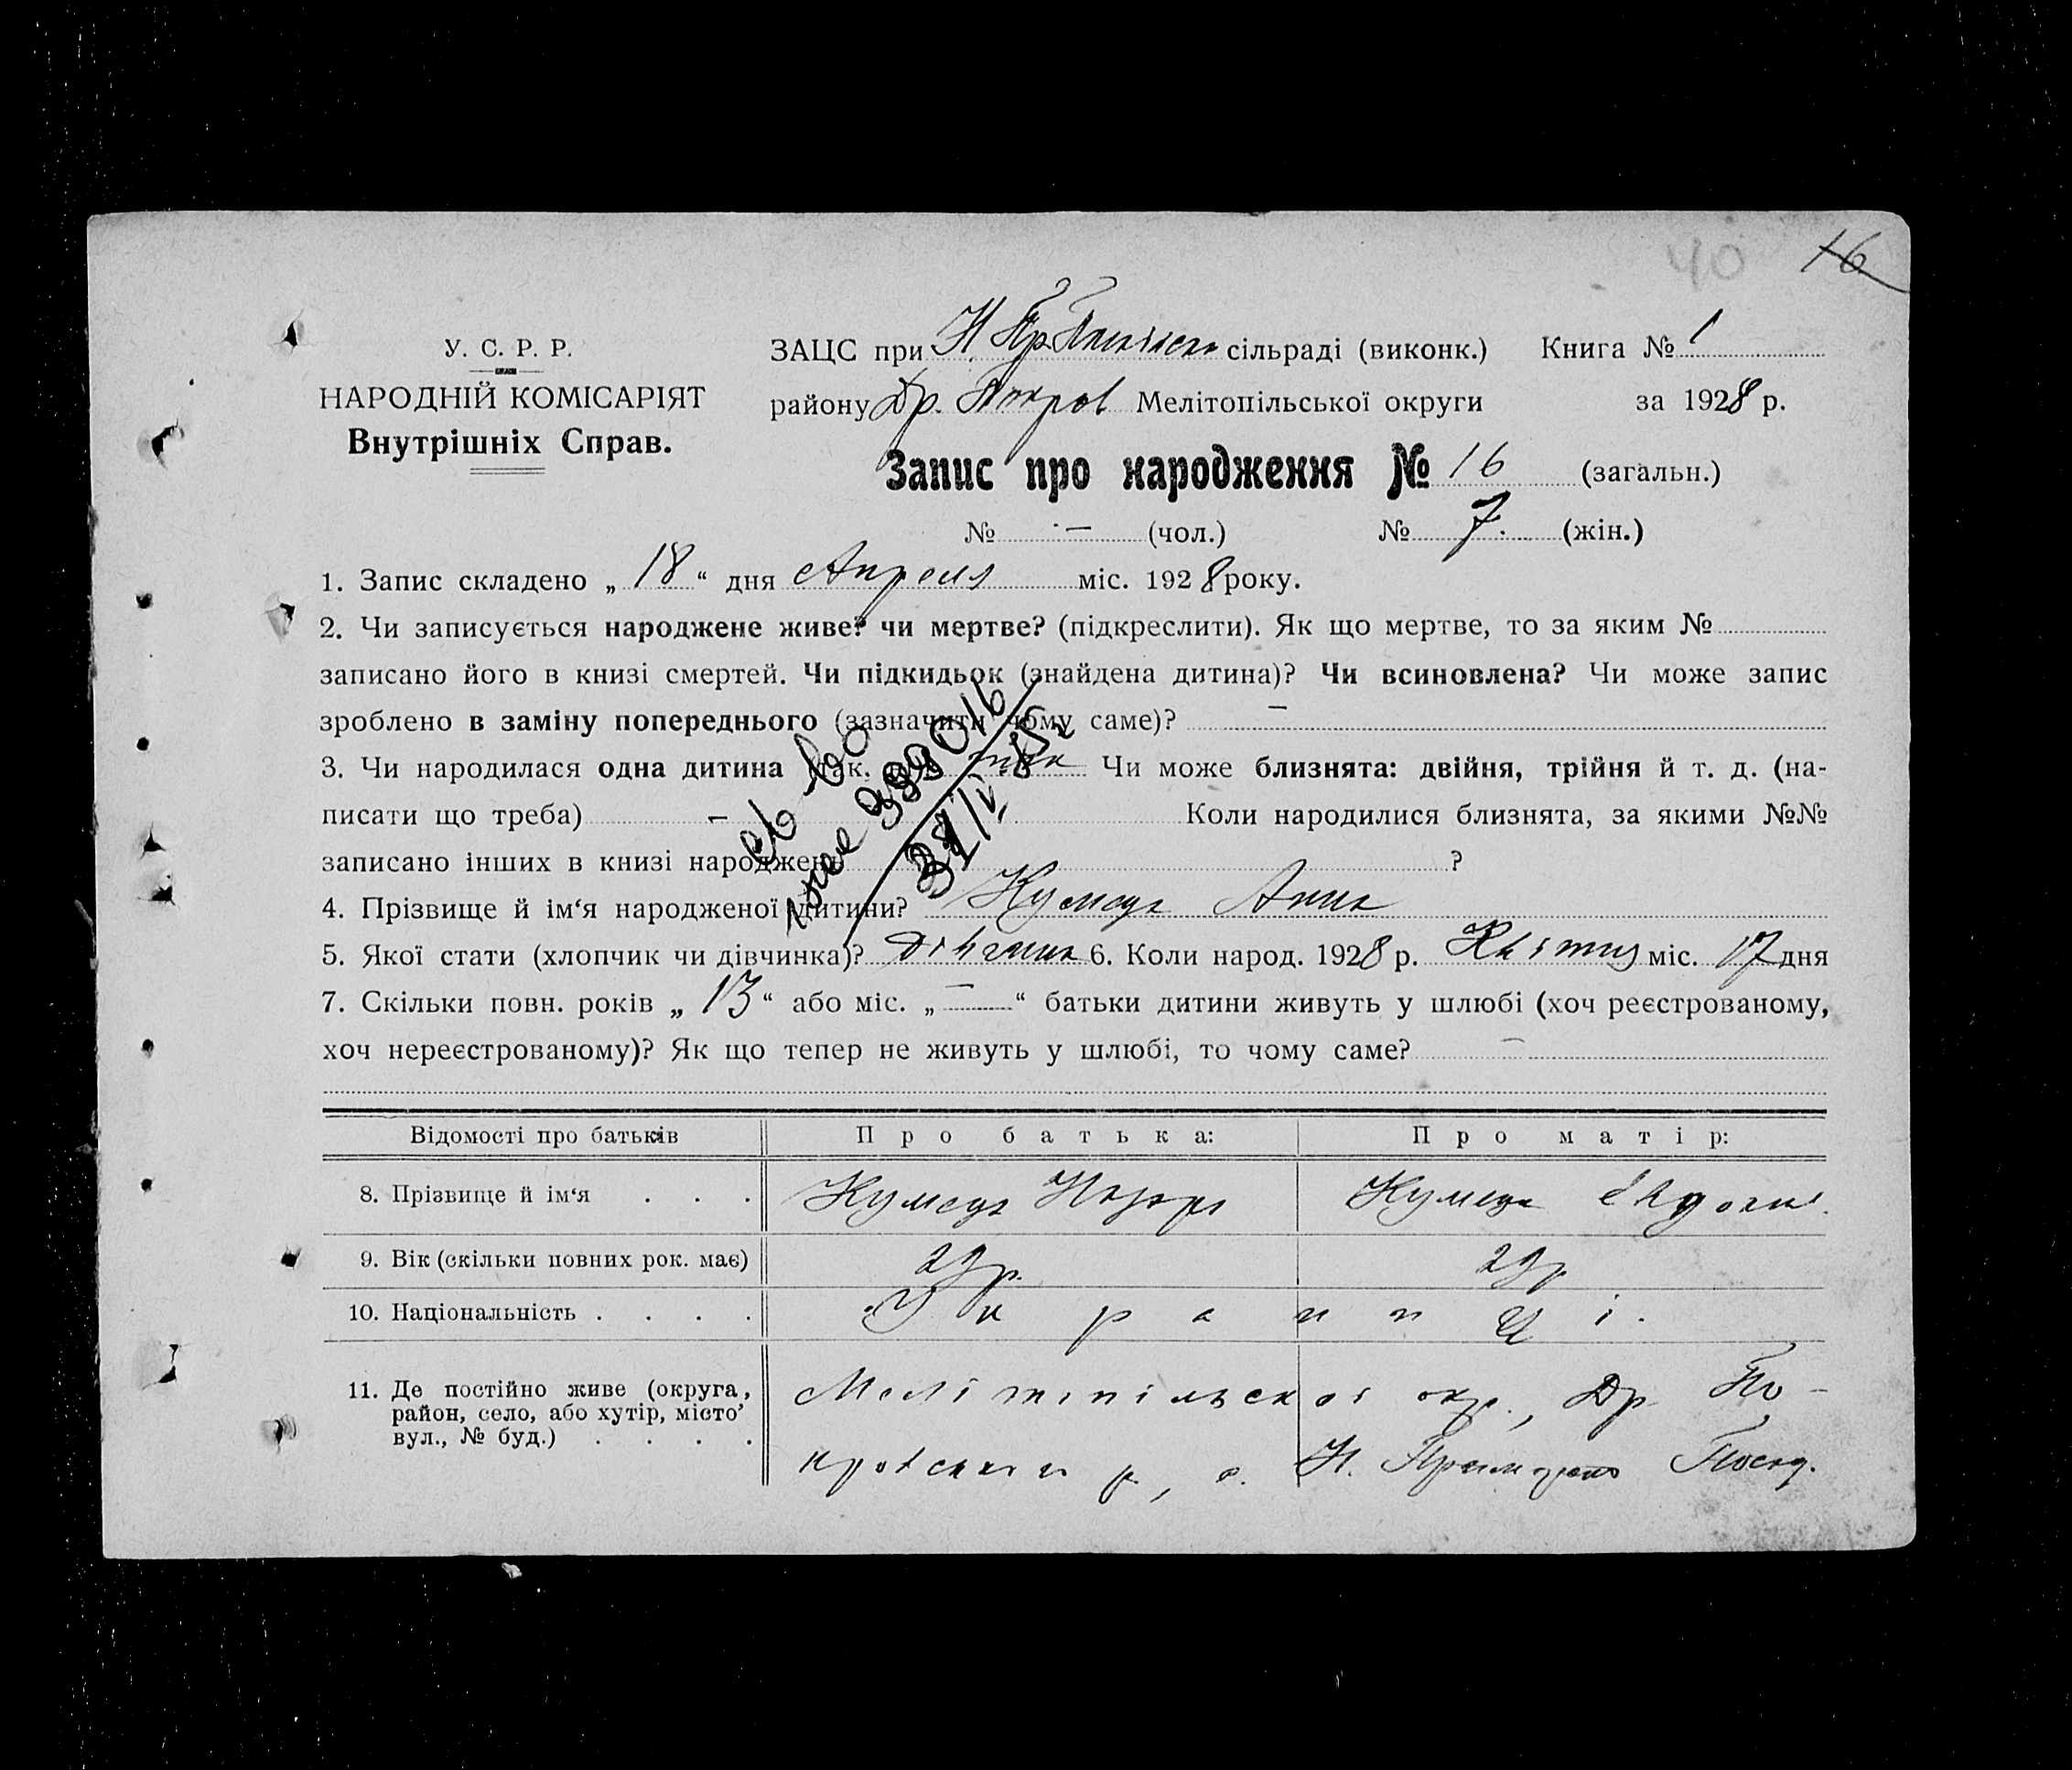 40 16
У. С. Р. Р.
НАРОДНІЙ КОМІСАРІЯТ
Внутрішніх Справ.
ЗАЦС при сільраді (виконк.) Книга № 1
району Др. Покров Мелітопільської округи за 1928 р.
Запис про народження № 16 (загальн.)
№ — (чол.) № 7. (жін.)
1. Запис складено „ 18 “ дня Апреля міс. 1928 року.
2. Чи записується народжене живе? чи мертве? (підкреслити). Як що мертве, то за яким №
записано його в книзі смертей. Чи підкидьок (знайдена дитина)? Чи всиновлена? Чи може запис
зроблено в заміну попереднього (зазначити чому саме)? —
3. Чи народилася одна дитина так Чи може близнята: двійня, трійня й т. д. (на-
писати що треба) — Коли народилися близнята, за якими №№
записано інших в книзі народжень ?
4. Прізвище й ім‘я народженої дитини? Анна
5. Якої стати (хлопчик чи дівчинка)? дівчина 6. Коли народ. 1928 р. Квітня міс. 17 дня
7. Скільки повн. років „ 13 “ або міс. „ — “ батьки дитини живуть у шлюбі (хоч реєстрованому,
хоч нереєстрованому)? Як що тепер не живуть у шлюбі, то чому саме? —
Відомості про батьків Про батька: Про матір:
8. Прізвище й ім‘я . . . Назар
9. Вік (скільки повних рок. має)
10. Національність . . . . Украинці.
11. Де постійно живе (округа, район, село, або хутір, місто, вул., № буд.) . . . . Мелітопільскоі окр., Др По-
кровського р, с. Н. Посад.